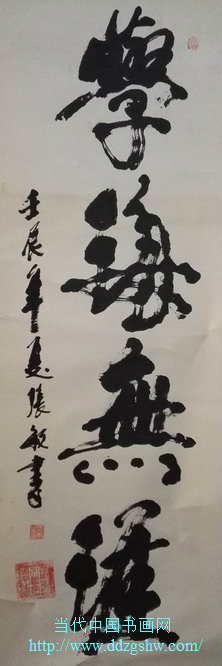 學海無涯
壬辰年夏張敏書
当代中国书画网
http://www.ddzgshw.com/